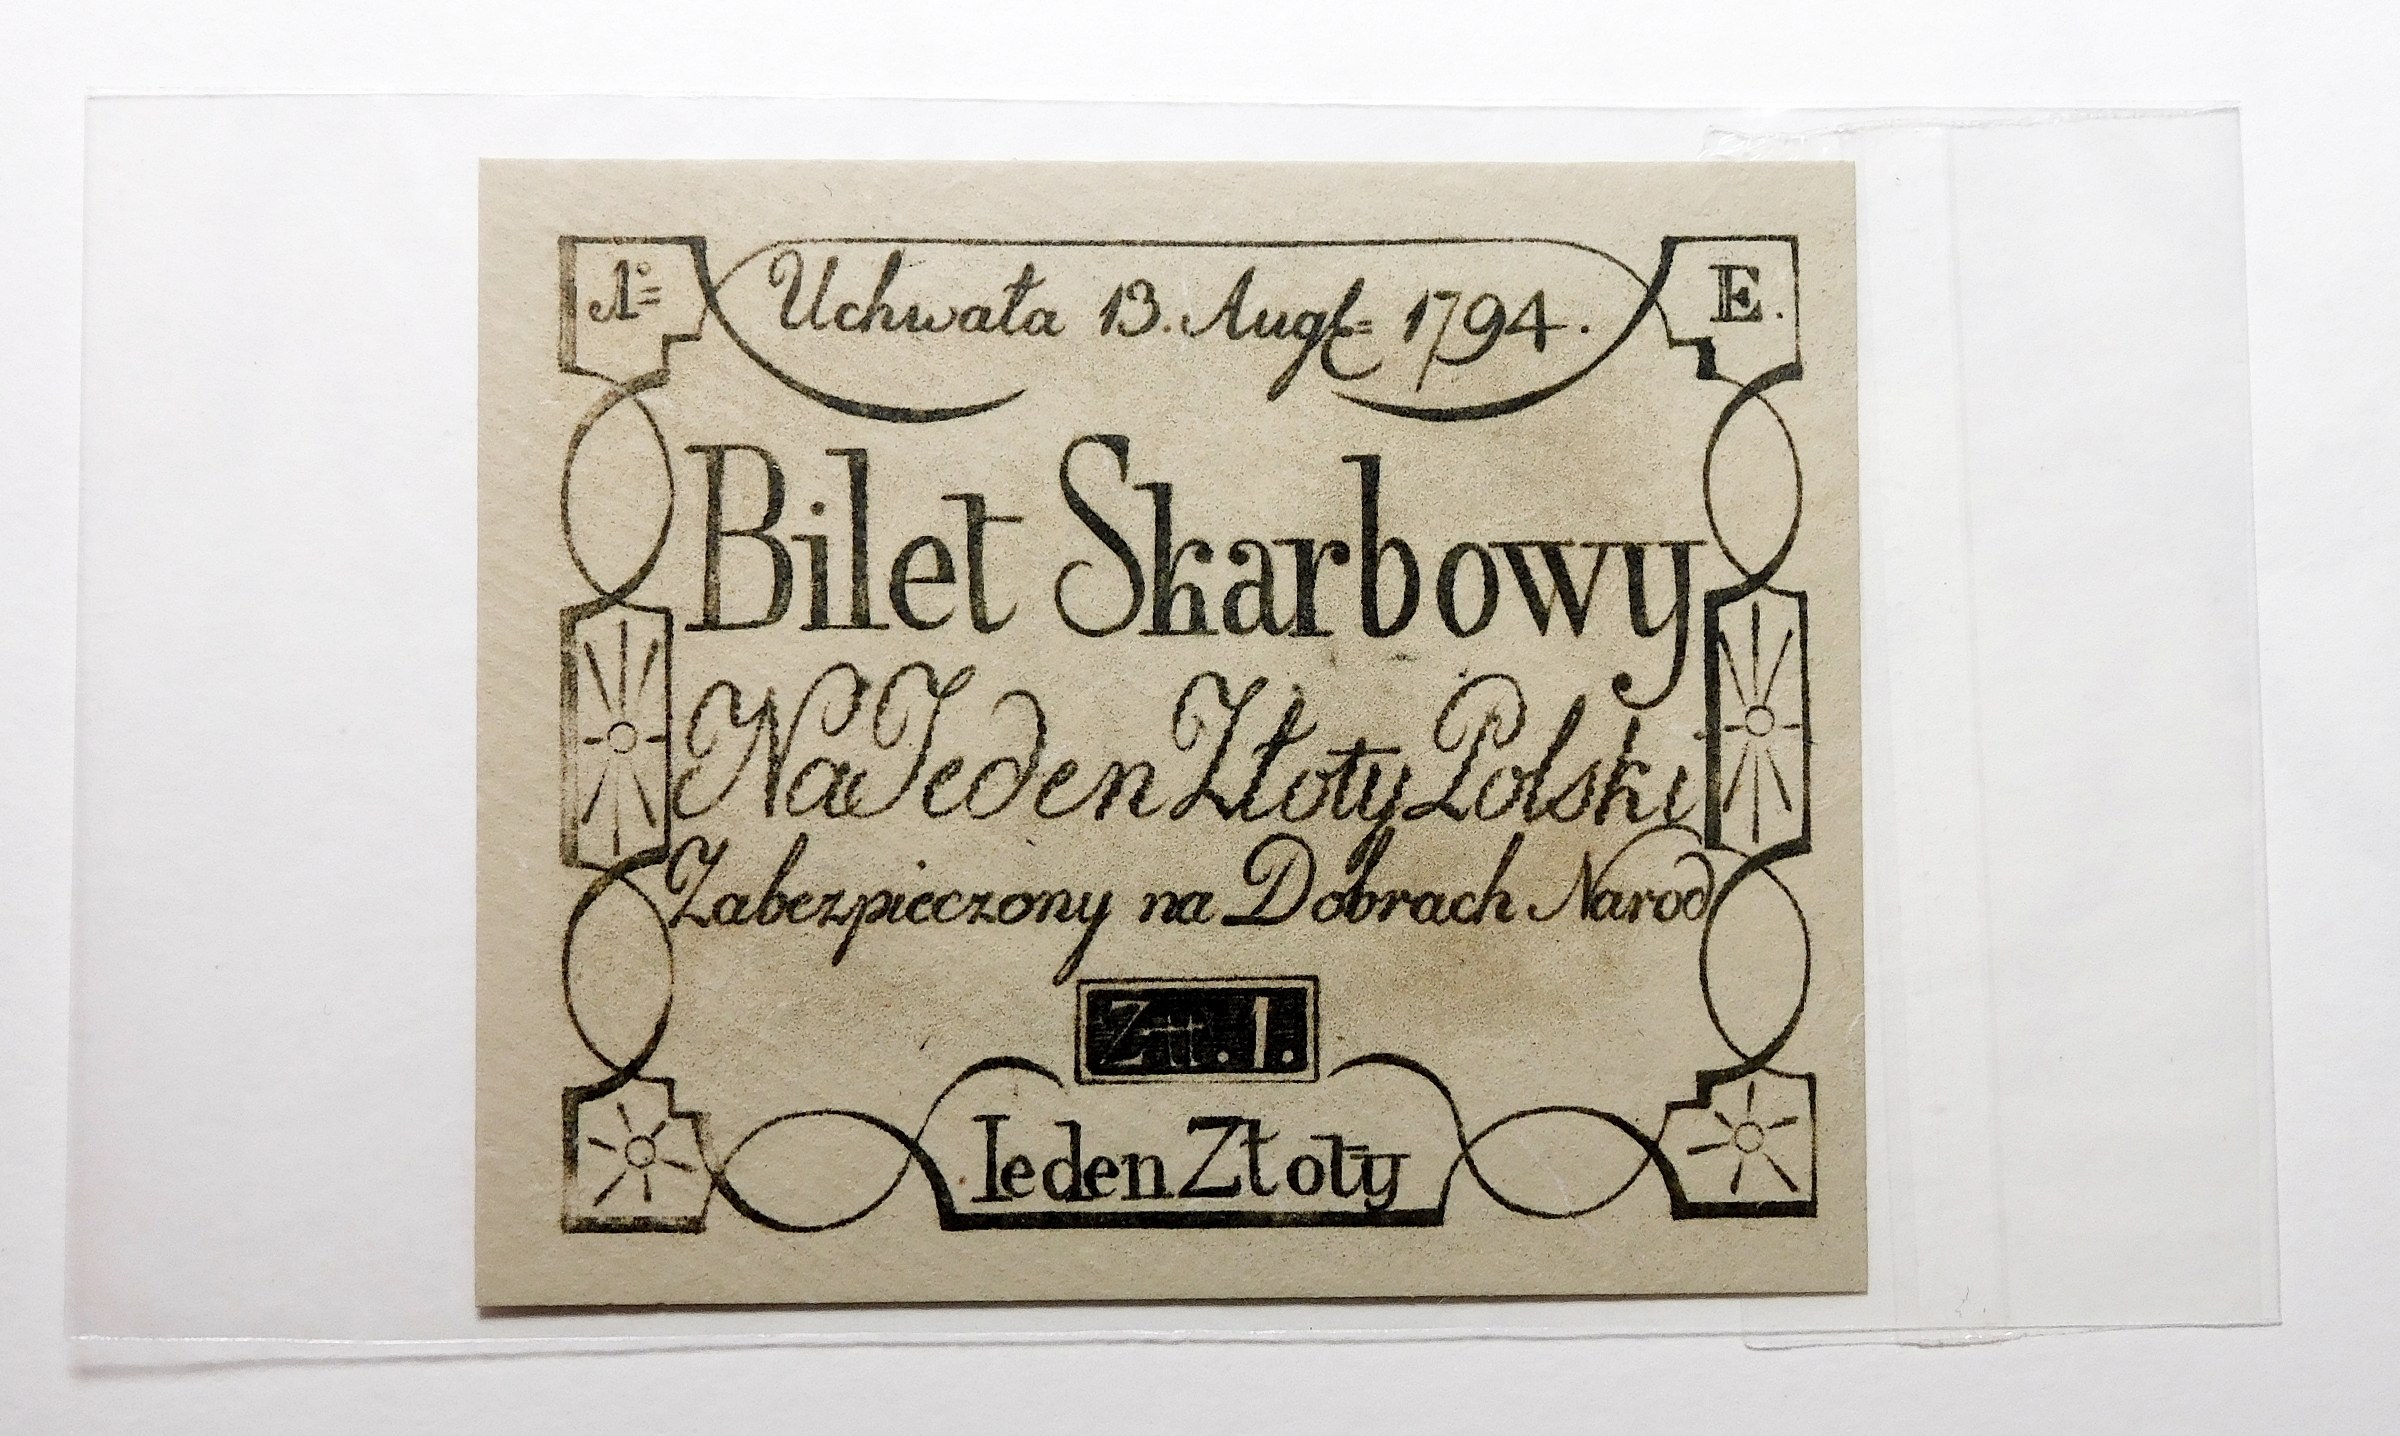 № Uchwała 13. Augt= 1794. E.
Bilet Skarbowy
Na Jeden Złoty Polski
Zabezpieczony na Dobrach Narod
Zł. 1.
Ieden Złoty